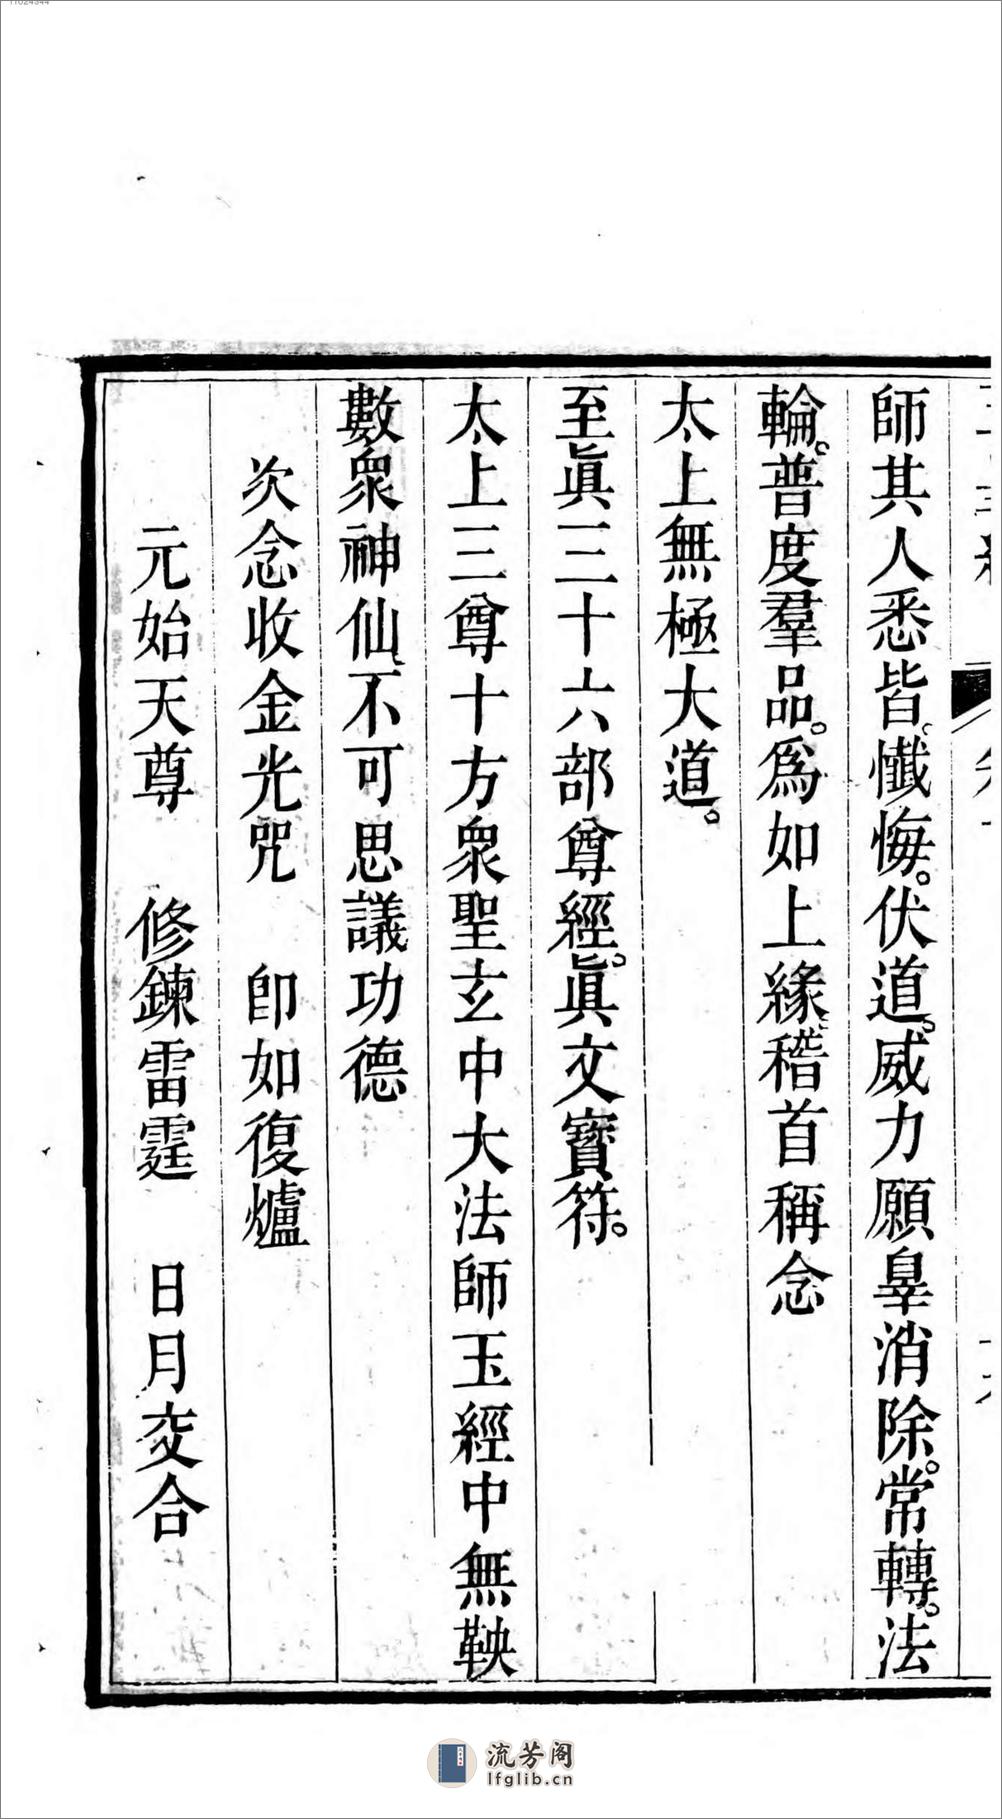 師其人悉皆。懺悔。伏道。威力願辠消除。常轉。法
輪。普度羣品。爲如上緣、稽首稱念
太上無極大道。
至眞三十六部尊經。眞文寶符。
太上三尊十方衆聖玄中大法師玉經中無鞅
數衆神仙、不可思議功德
次念收金光咒　卽如復爐
元始天尊　修鍊雷霆　日月交合
流芳阁
lfglib.cn